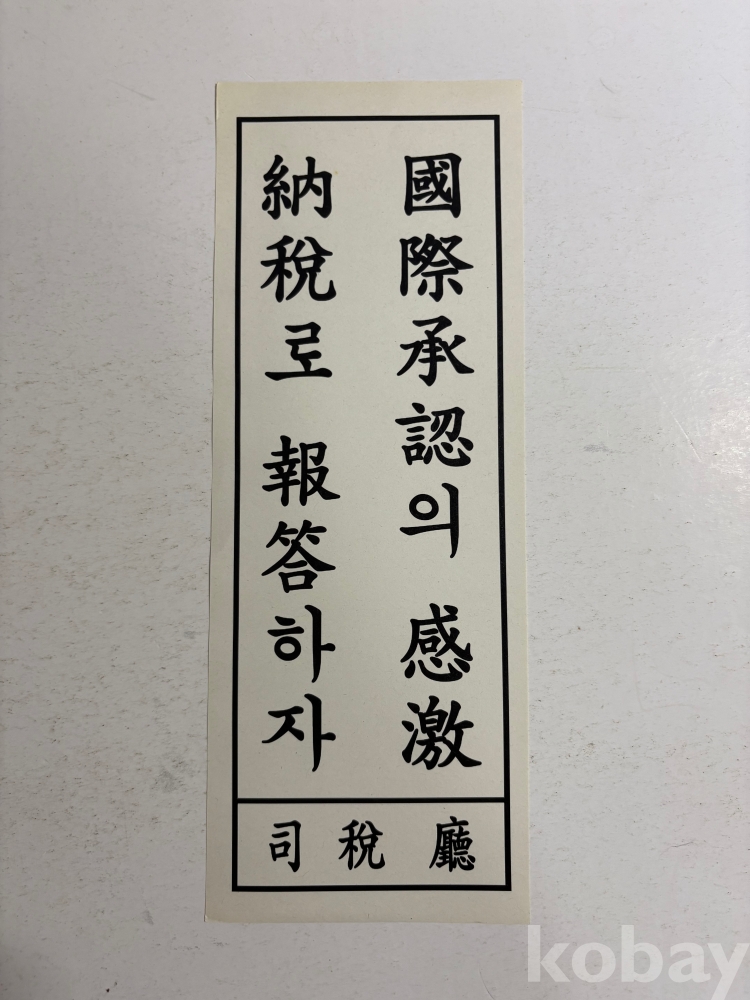 國際承認의 感激
納稅로 報答하자
司稅廳
kobay